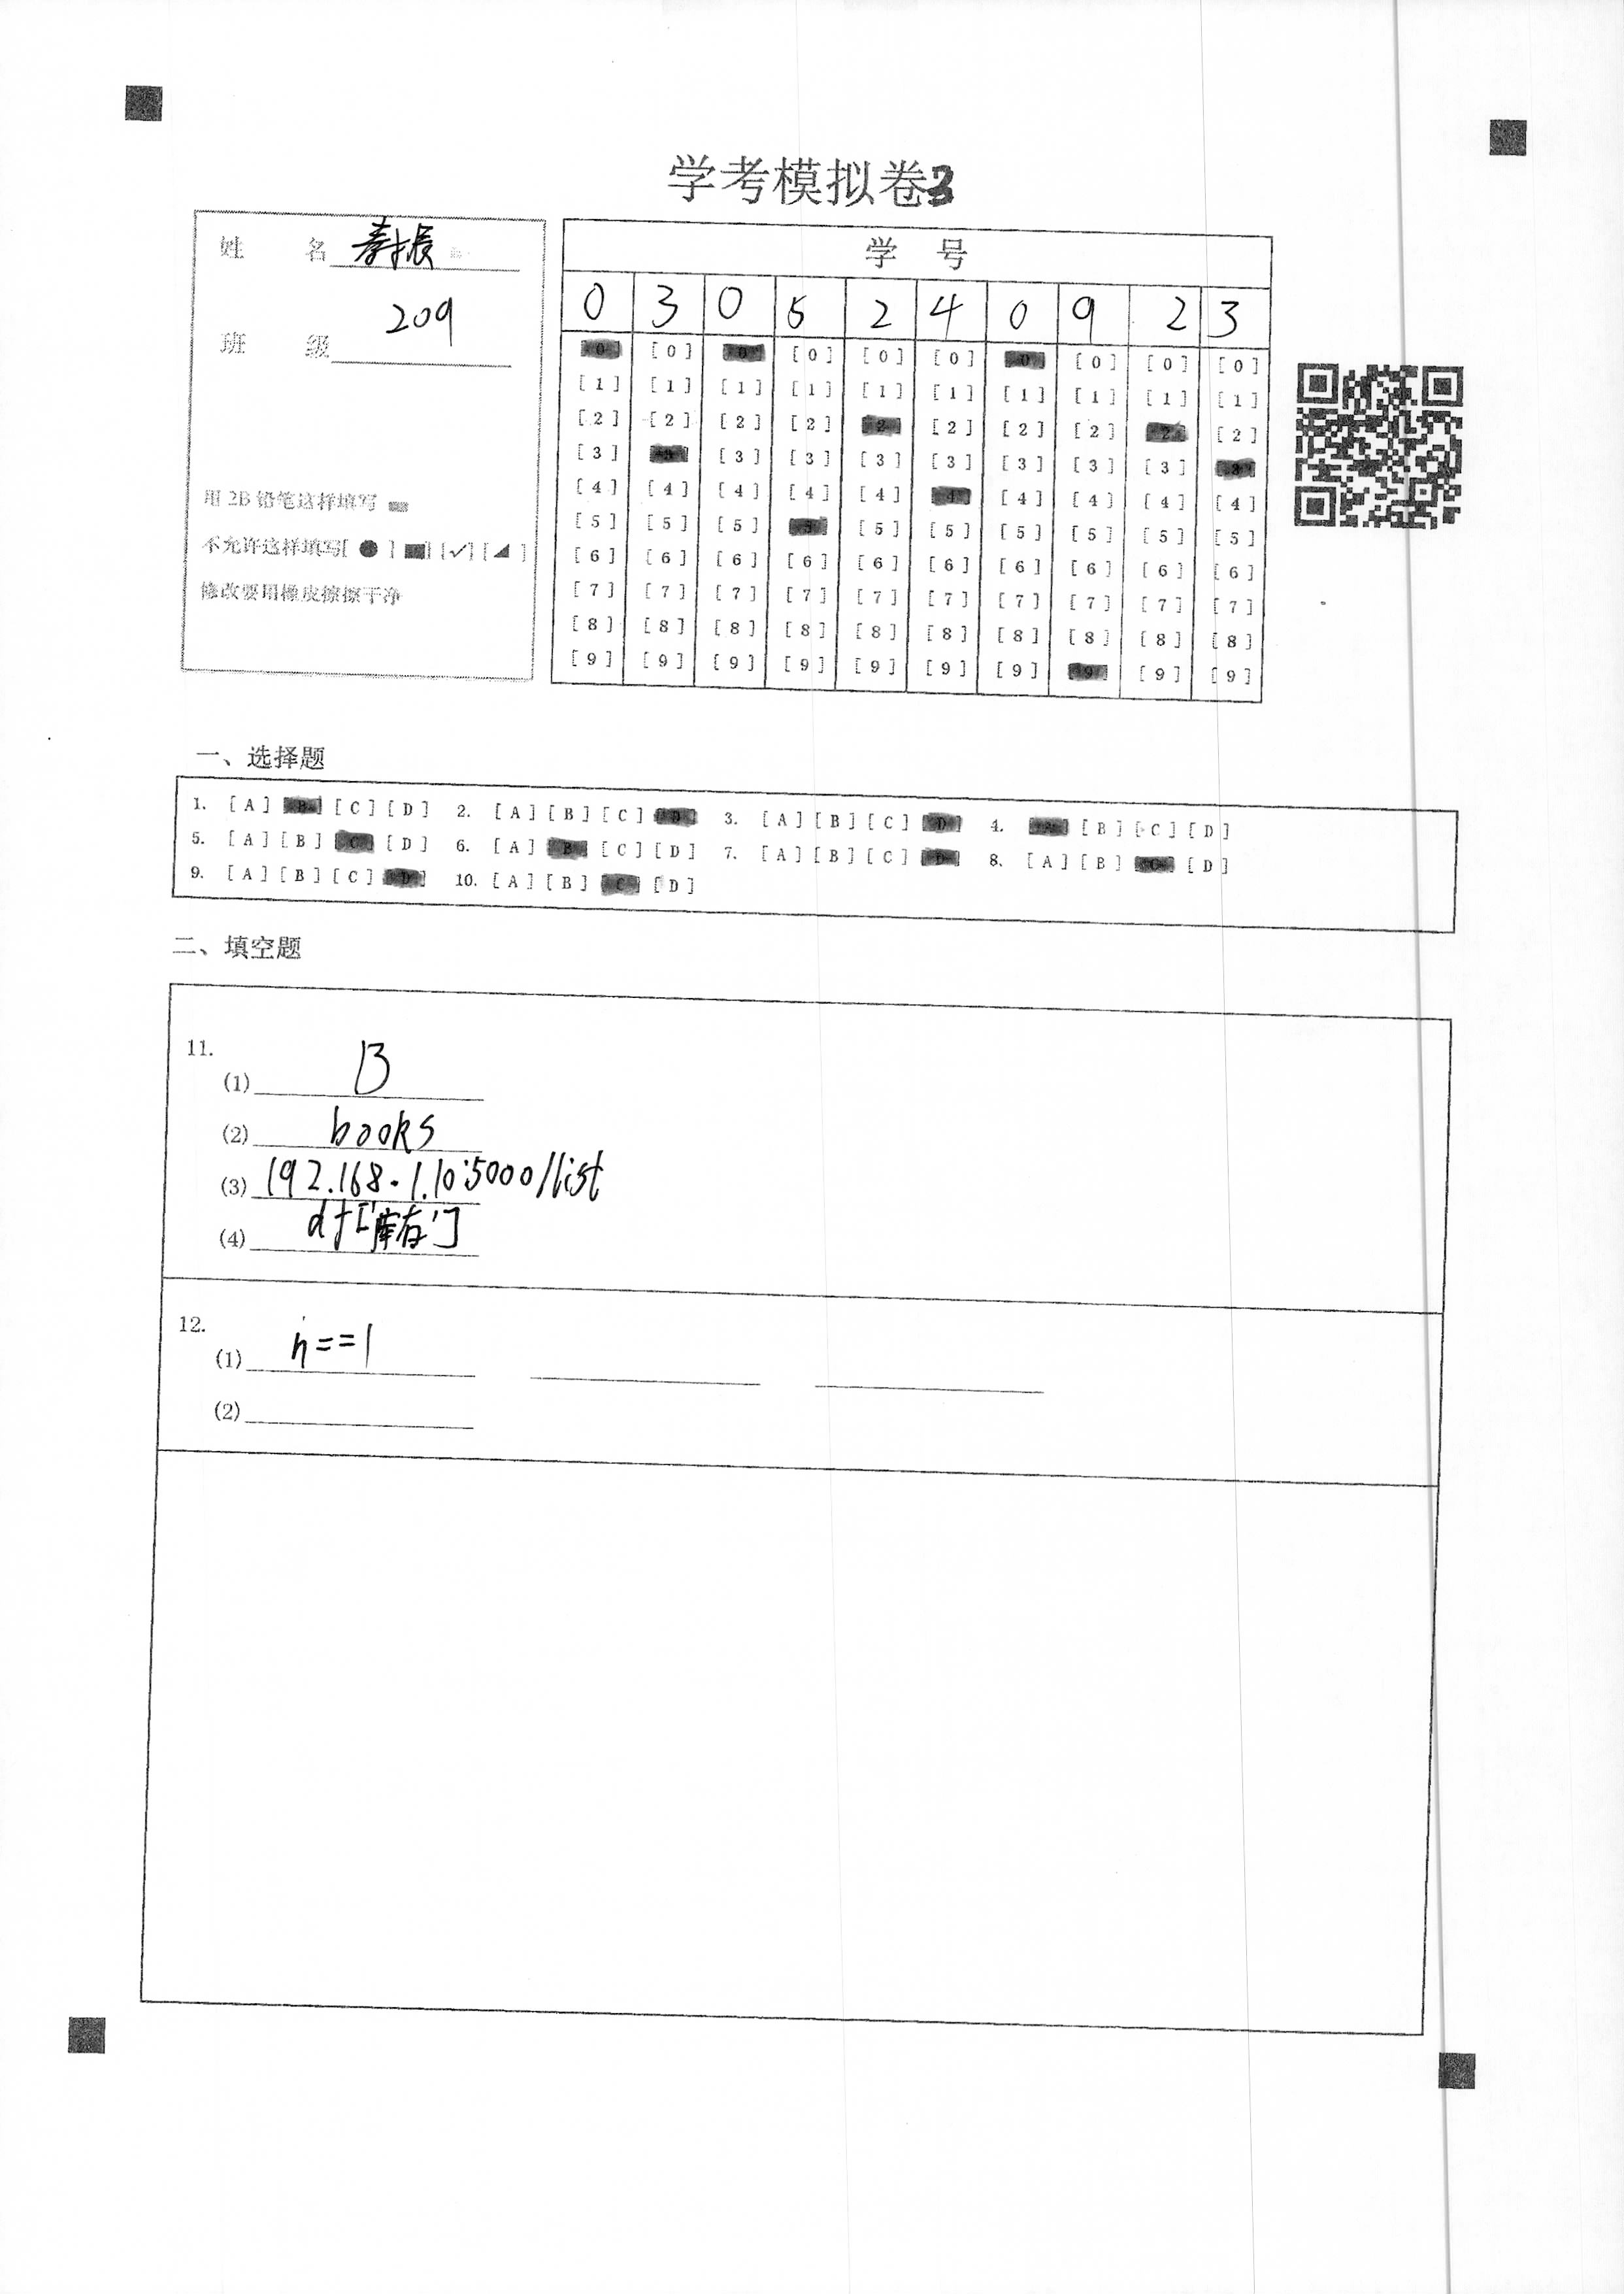 学考模拟卷3
姓 名 秦振
班 级 209
用 2B 铅笔这样填写
不允许这样填写[ ● ] [■] [✓] [◢ ]
修改要用橡皮擦擦干净
学 号
0 3 0 5 2 4 0 9 2 3
[0] [0] [0] [0] [0] [0] [0] [0] [0] [0]
[1] [1] [1] [1] [1] [1] [1] [1] [1] [1]
[2] [2] [2] [2] [2] [2] [2] [2] [2] [2]
[3] [3] [3] [3] [3] [3] [3] [3] [3] [3]
[4] [4] [4] [4] [4] [4] [4] [4] [4] [4]
[5] [5] [5] [5] [5] [5] [5] [5] [5] [5]
[6] [6] [6] [6] [6] [6] [6] [6] [6] [6]
[7] [7] [7] [7] [7] [7] [7] [7] [7] [7]
[8] [8] [8] [8] [8] [8] [8] [8] [8] [8]
[9] [9] [9] [9] [9] [9] [9] [9] [9] [9]
一、选择题
1. [A] [B] [C] [D] 2. [A] [B] [C] [D] 3. [A] [B] [C] [D] 4. [A] [B] [C] [D]
5. [A] [B] [C] [D] 6. [A] [B] [C] [D] 7. [A] [B] [C] [D] 8. [A] [B] [C] [D]
9. [A] [B] [C] [D] 10. [A] [B] [C] [D]
二、填空题
11.
(1) B
(2) books
(3) 192.168.1.10:5000/list
(4) df['库存']
12.
(1) n==1
(2)